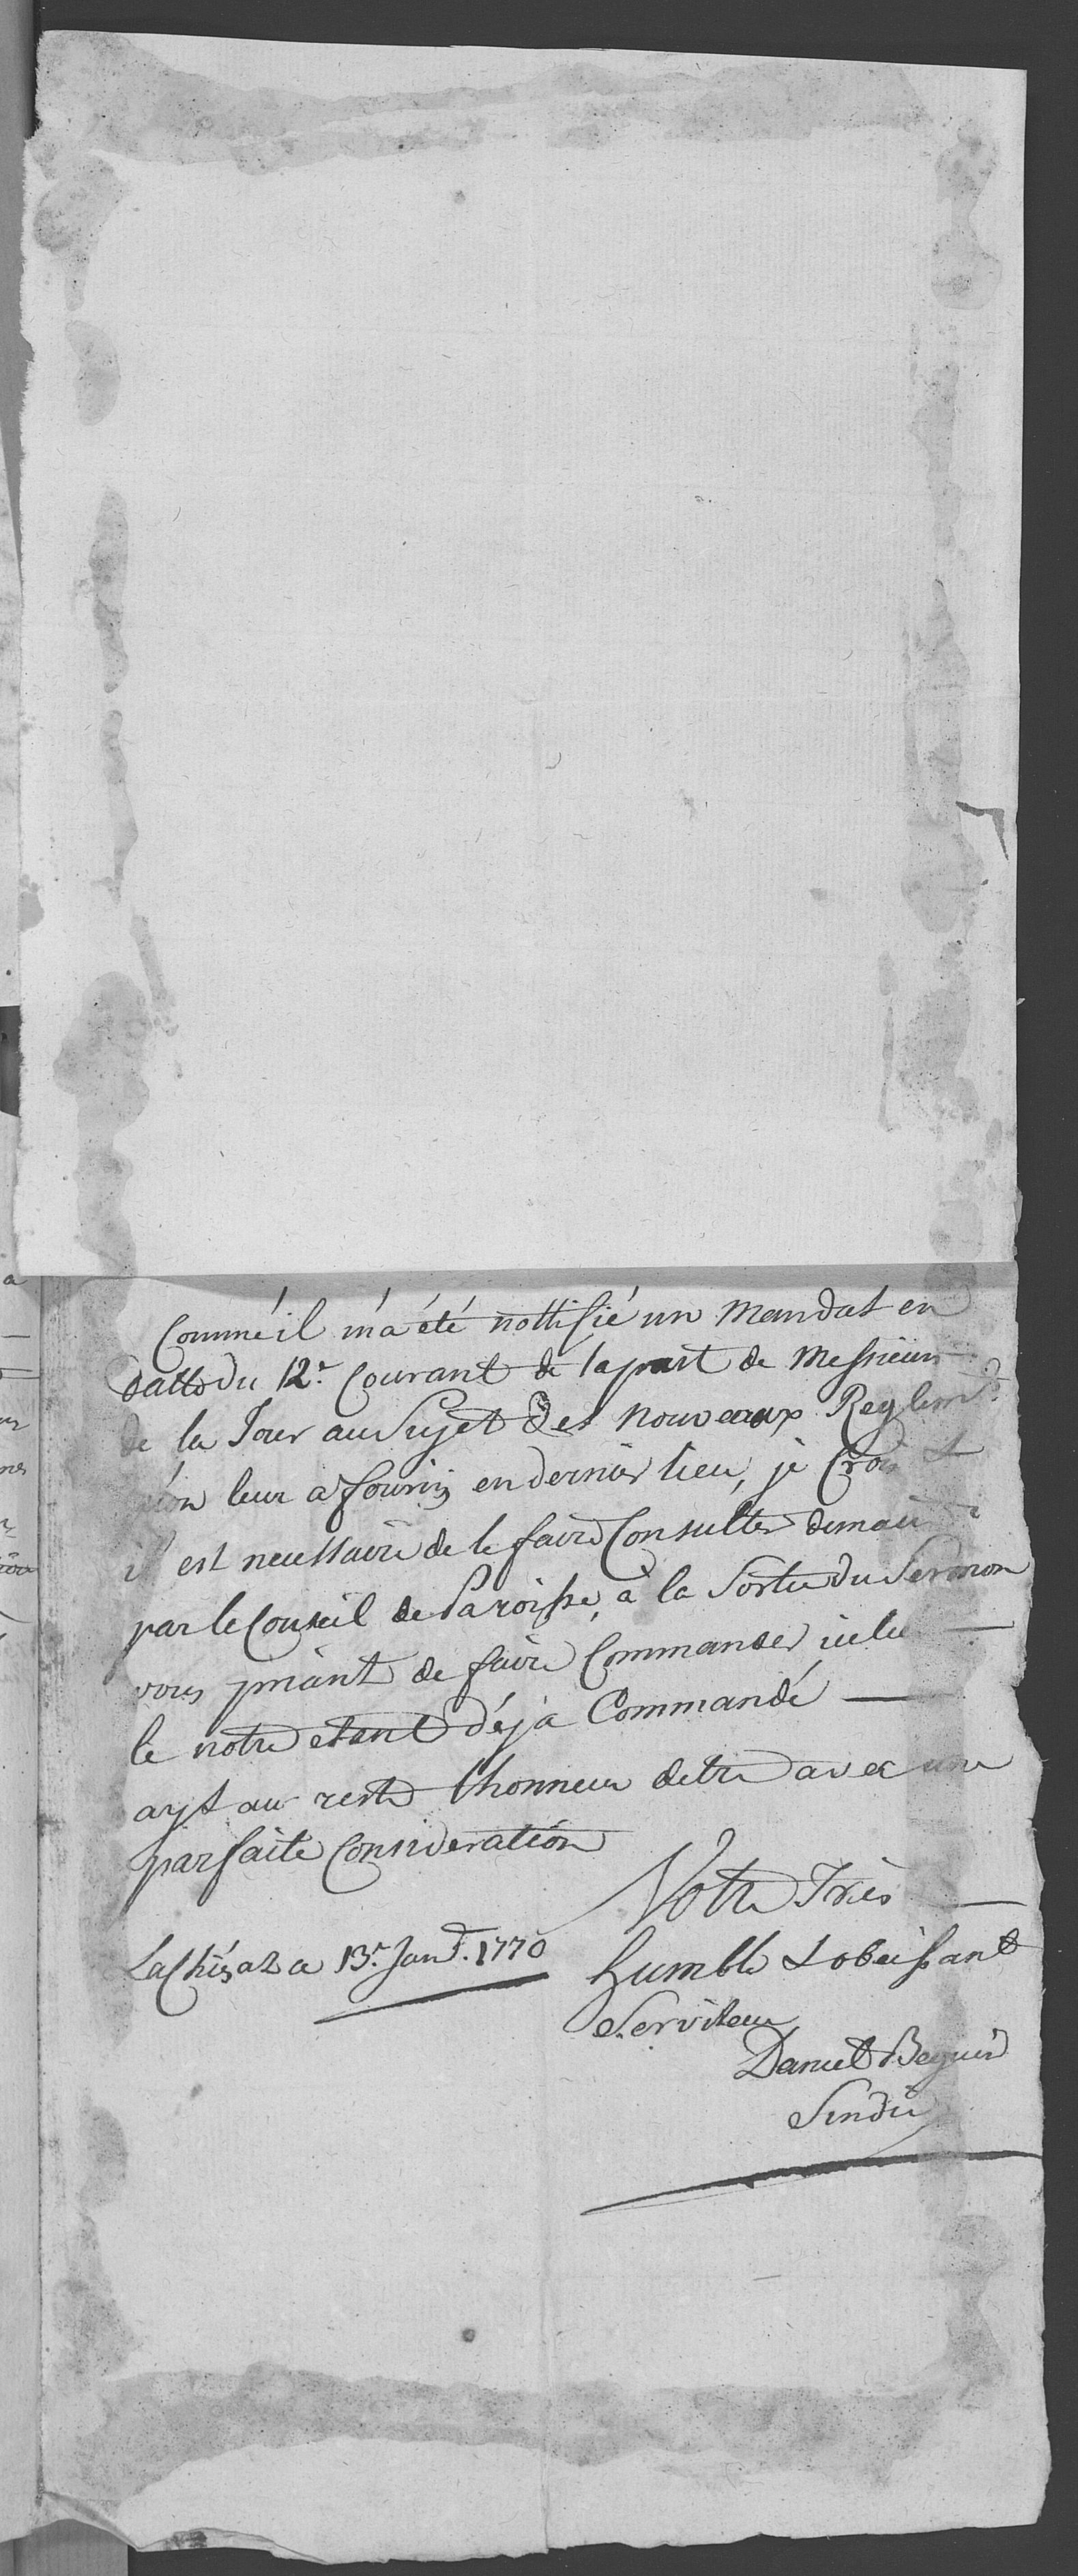 Comme il m'a été nottifié un Mandat en
datte du 12.e Courant de la part de Messieurs
de la Tour au Sujet des nouveaux Reglem.ts
qu'on leur a fournis en dernier lieu, je Crois
il est necessaire de le faire Consulter demain
par le Conseil de Paroisse, à la Sortie du Sermon
vous priant de faire Commander icelui —
le notre etant déja Commandé —
ayt au reste l'honneur detre avec une
parfaite Consideration
Votre Très —
humble & obeissant
Serviteur
Daniel Beguin
Sindic
La Chésaz a 13.e Janv. 1770